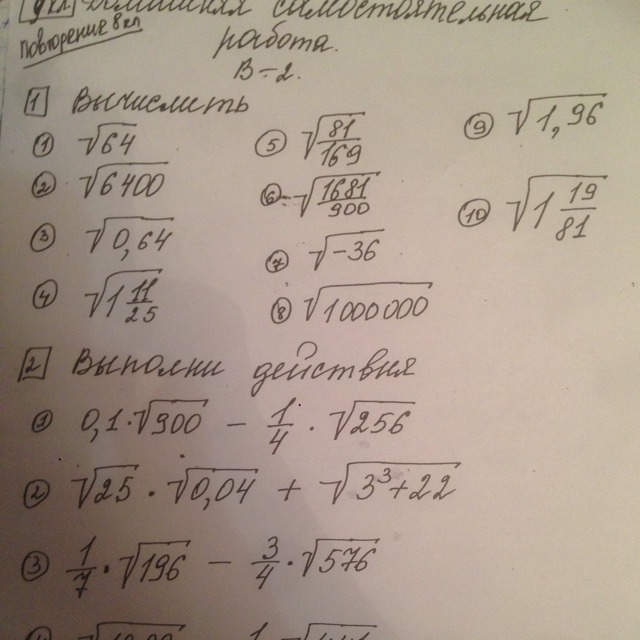 9 кл. Домашняя самостоятельная
Повторение 8 кл
работа.
В-2.
1 Вычислить
① √64
② √6400
③ √0,64
④ √1 11/25
⑤ √81/169
⑥ -√1681/900
⑦ √-36
⑧ √1000000
⑨ √1,96
⑩ √1 19/81
2 Выполни действия
① 0,1·√900 - 1/4 · √256
② √25 · √0,04 + √3³+22
③ 1/7 · √196 - 3/4 · √576